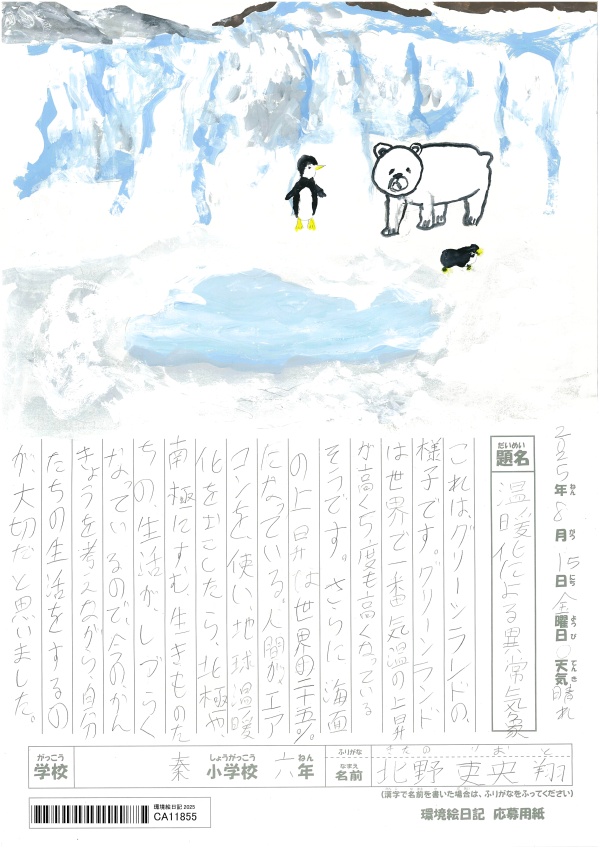 2025年8月15日金曜日 天気晴れ
ねん がつ にち ようび てんき
だいめい
題名
温暖化による異常気象
これは、グリーンランドの、
様子です。グリーンランド
は世界で一番気温の上昇
が高く5度も高くなっている
そうです。さらに海面
の上昇は世界の二十五%
になっている。人間がエア
コンを、使い、地球温暖
化をおこしたら、北極や、
南極にすむ、生きものた
ちの、生活が、しづらく
なっているので、今のかん
きょうを考えながら、自分
たちの生活をするの
が、大切だと思いました。
がっこう しょうがっこう ねん
学校 秦 小学校 六年
ふりがな きたの りおと
なまえ
名前 北野 吏央翔
(漢字で名前を書いた場合は、ふりがなをふってください)
環境絵日記 応募用紙
環境絵日記 2025
CA11855